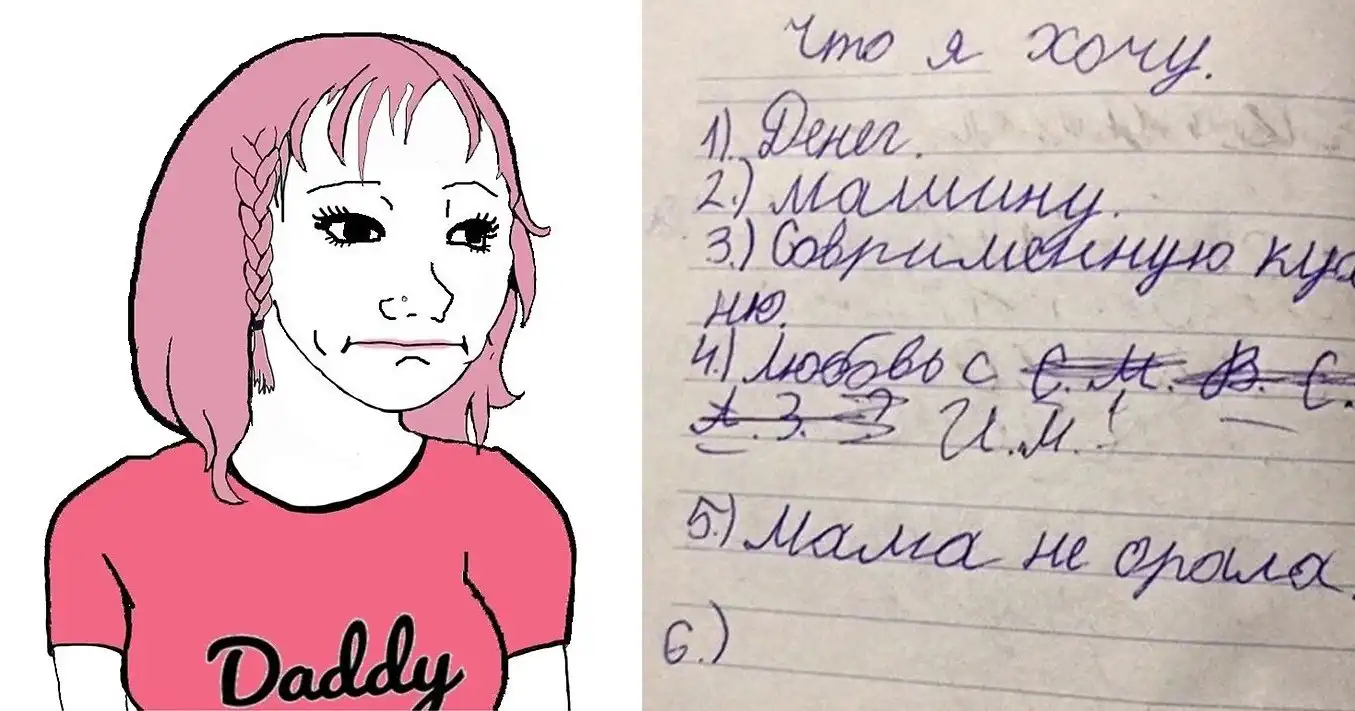 Daddy
Что я хочу.
1). Денег.
2.) Машину.
3.) Соврименную кух
ню.
4.) Любовь с С. М. В. С.
А. З. З И.М.!
5.) Мама не орала.
6.)